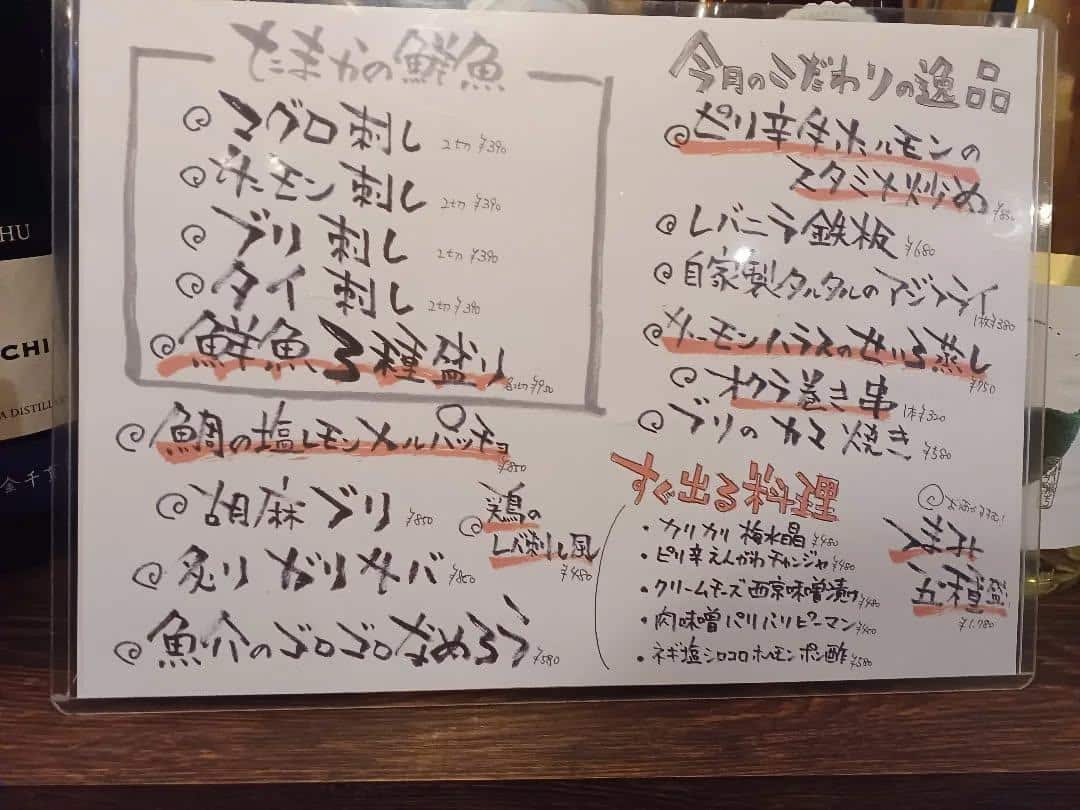 たまかの鮮魚
マグロ刺し 2切 ¥390
サーモン刺し 2切 ¥390
ブリ刺し 2切 ¥390
タイ刺し 2切 ¥390
鮮魚3種盛り 各2切 ¥950
鯛の塩レモンメルパッチョ ¥850
胡麻ブリ ¥850
炙りガリサバ ¥850
魚介のゴロゴロなめろう ¥580
鶏の
レバ刺し風
¥480
今月のこだわりの逸品
ピリ辛牛ホルモンの
スタミナ炒め ¥850
レバニラ鉄板 ¥680
自家製タルタルのアジフライ
1枚¥380
サーモンハラスのせいろ蒸し
¥750
オクラ巻き串 1本¥320
ブリのカマ焼き ¥580
すぐ出る料理
・カリカリ梅水晶 ¥480
・ピリ辛えんがわチャンジャ ¥480
・クリームチーズ西京味噌漬け ¥480
・肉味噌パリパリピーマン ¥400
・ネギ塩シロコロホルモンポン酢 ¥580
五種盛
¥1,780
HU
CHI
A DISTILL